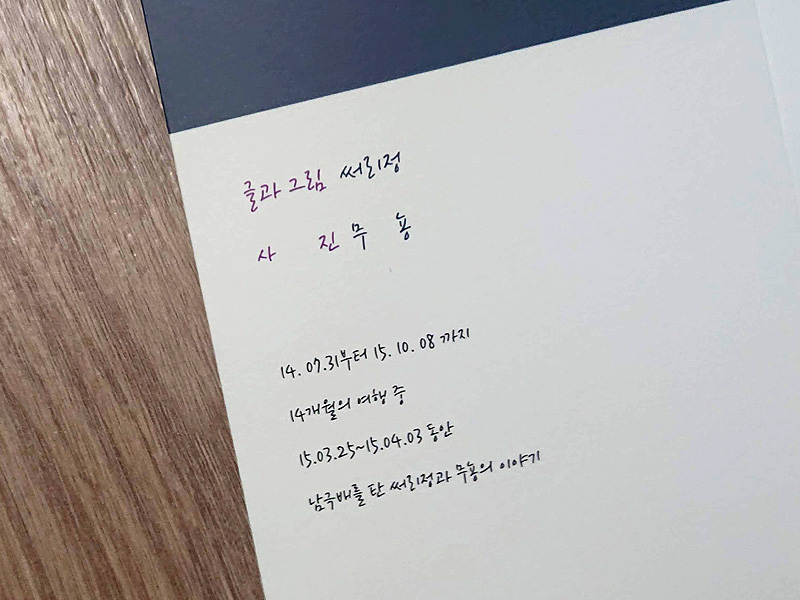 글과 그림 써리정
사 진 무 늉
14. 07.31부터 15. 10. 08 까지
14개월의 여행 중
15.03.25~15.04.03 동안
남극배를 탄 써리정과 무늉의 이야기